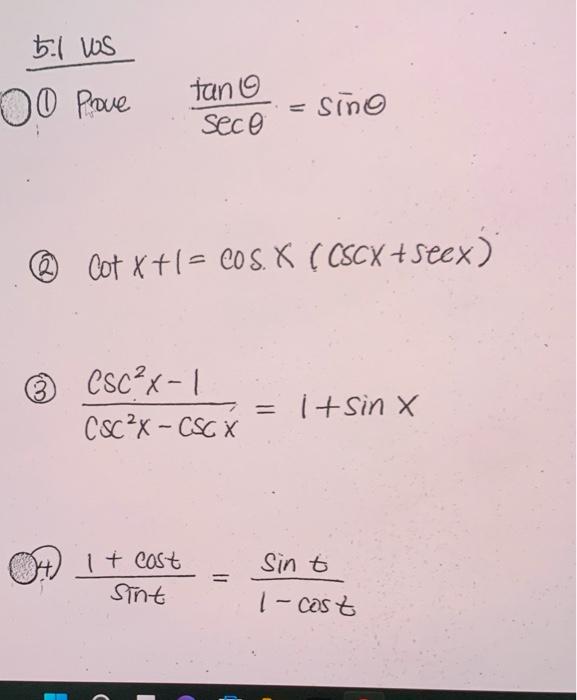 5.1 WS
① Prove tanθ/secθ = sinθ
② Cot x + 1 = cos x (cscx + secx)
③ csc²x - 1 / csc²x - csc x = 1 + sin x
④ 1 + cost / sint = sin t / 1 - cos t